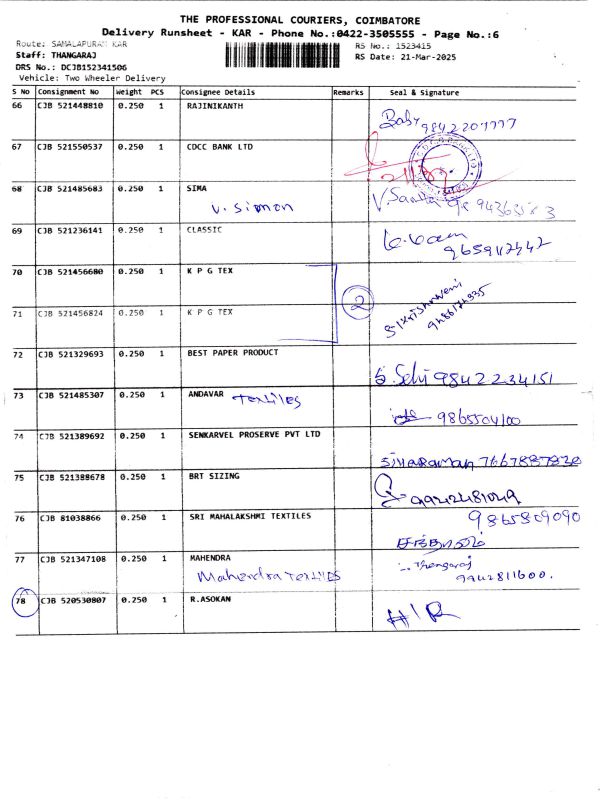 THE PROFESSIONAL COURIERS, COIMBATORE
Delivery Runsheet - KAR - Phone No.:0422-3505555 - Page No.:6
Route: SAMALAPURAM KAR
RS No.: 1523415
Staff: THANGARAJ
RS Date: 21-Mar-2025
DRS No.: DCJB152341506
Vehicle: Two Wheeler Delivery
S No Consignment No Weight PCS Consignee Details Remarks Seal & Signature
66 CJB 521448810 0.250 1 RAJINIKANTH
Baby 9842207777
67 CJB 521550537 0.250 1 CDCC BANK LTD
68 CJB 521485683 0.250 1 SIMA
V. Simon
69 CJB 521236141 0.250 1 CLASSIC
70 CJB 521456680 0.250 1 K P G TEX
2
71 CJB 521456824 0.250 1 K P G TEX
72 CJB 521329693 0.250 1 BEST PAPER PRODUCT
9842234151
73 CJB 521485307 0.250 1 ANDAVAR Textiles
9865504100
74 CJB 521389692 0.250 1 SENKARVEL PROSERVE PVT LTD
SIVARAMAN 7667887830
75 CJB 521388678 0.250 1 BRT SIZING
9942481049
76 CJB 81038866 0.250 1 SRI MAHALAKSHMI TEXTILES 9865809090
77 CJB 521347108 0.250 1 MAHENDRA
Mahendra Textiles
Thangaraj
9942811600.
78 CJB 520530807 0.250 1 R.ASOKAN
H/R